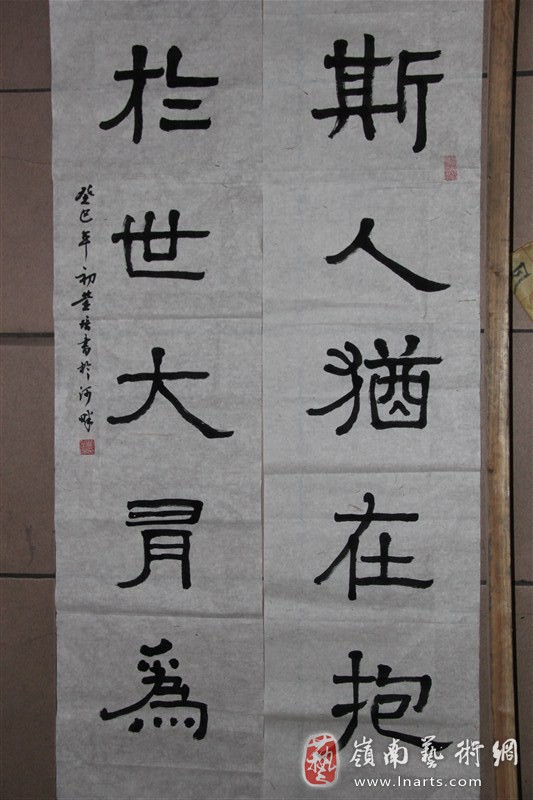 斯人猶在抱
於世大有為
癸巳年初
書於河畔
嶺南藝術網
www.lnarts.com